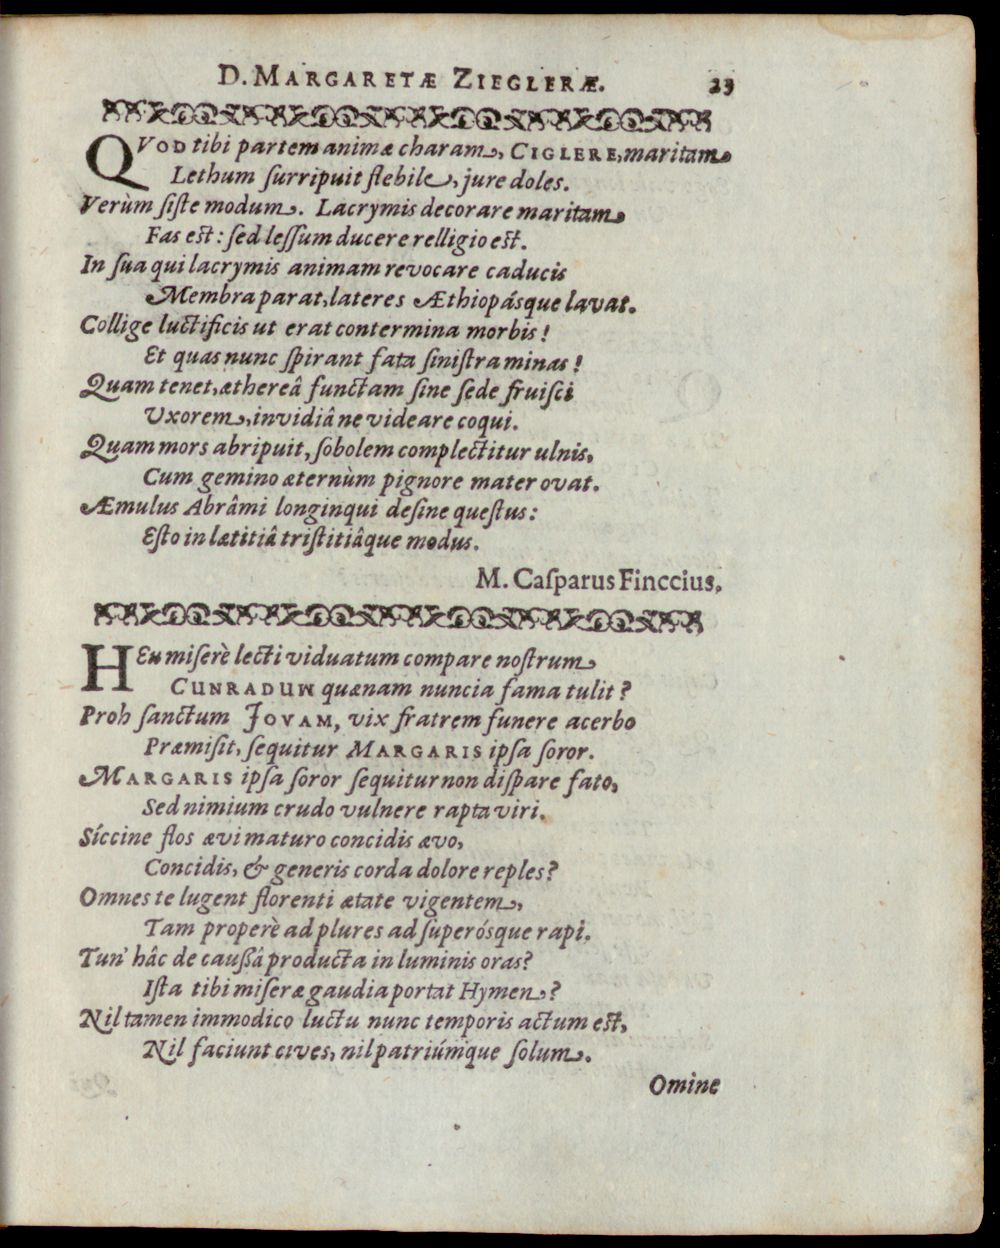 D. MARGARETÆ ZIEGLERÆ. 23
QVOD tibi partem animæ charam, CIGLERE, maritam
Lethum ſurripuit flebile, jure doles.
Verùm ſiſte modum. Lacrymis decorare maritam
Fas eſt: ſed leſſum ducere relligio eſt.
In ſua qui lacrymis animam revocare caducis
Membra parat, lateres Æthiopásque lavat.
Collige luctificis ut erat contermina morbis!
Et quas nunc ſpirant fata ſiniſtra minas!
Quam tenet, æthereâ functam ſine ſede fruiſci
Uxorem, invidiâ ne videare coqui.
Quam mors abripuit, ſobolem complectitur ulnis,
Cum gemino æternùm pignore mater ovat.
Æmulus Abrâmi longinqui deſine queſtus:
Eſto in lætitiâ triſtitiâque modus.
M. Caſparus Finccius.
HEu miſerè lecti viduatum compare noſtrum
CUNRADUM quænam nuncia fama tulit?
Proh ſanctum JOVAM, vix fratrem funere acerbo
Præmiſit, ſequitur MARGARIS ipſa ſoror.
MARGARIS ipſa ſoror ſequitur non diſpare fato,
Sed nimium crudo vulnere rapta viri.
Síccine flos ævi maturo concidis ævo,
Concidis, & generis corda dolore reples?
Omnes te lugent florenti ætate vigentem,
Tam properè ad plures ad ſuperósque rapi.
Tun' hâc de cauſſâ producta in luminis oras?
Iſta tibi miſeræ gaudia portat Hymen?
Nil tamen immodico luctu nunc temporis actum eſt,
Nil faciunt cives, nil patriúmque ſolum.
Omine